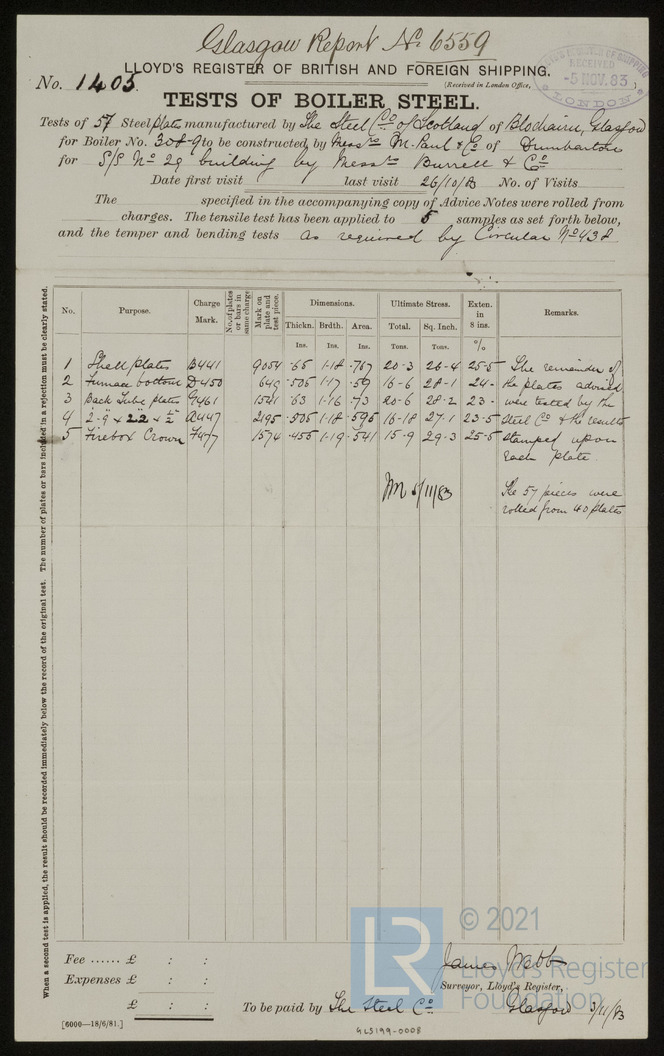 Glasgow Report No 6559
LLOYD'S REGISTER OF BRITISH AND FOREIGN SHIPPING.
No. 1405.
(Received in London Office,
RECEIVED
-5 NOV. 83
LONDON
TESTS OF BOILER STEEL.
Tests of 57 Steel plates manufactured by The Steel Co of Scotland of Blochairn, Glasgow
for Boiler No. 308-9 to be constructed by Messrs M. Paul & Co of Dumbarton
for S/S No 29 building by Messrs Burrell & Co
Date first visit last visit 26/10/83 No. of Visits
The specified in the accompanying copy of Advice Notes were rolled from
charges. The tensile test has been applied to 5 samples as set forth below,
and the temper and bending tests as required by Circular No 438
No. Purpose. Charge Mark. No. of plates or bars in same charge Mark on plate and test piece. Dimensions. Ultimate Stress. Exten. in 8 ins. Remarks.
Thickn. Brdth. Area. Total. Sq. Inch.
Ins. Ins. Ins. Tons. Tons. %
1 Shell plates B441 9054 .65 1.18 .767 20-3 26-4 25-5 The remainder of
2 Furnace bottom D450 649 .505 1.17 .59 16-6 28-1 24- the plates advised
3 Back Tube plates G461 1541 .63 1.16 .73 20-6 28-2 23- were tested by the
4 "2-9 & 22 & ½" A447 2195 .505 1.18 .595 16-18 27.1 23-5 Steel Co & the results
5 Firebox Crown F477 1574 .455 1.19 .541 15-9 29-3 25-5 stamped upon
each plate.
5/11/83
The 57 pieces were
rolled from 40 plates
When a second test is applied, the result should be recorded immediately below the record of the original test. The number of plates or bars included in a rejection must be clearly stated.
© 2021
LR
Lloyd's Register
Foundation
Fee ...... £ : :
Expenses £ : :
£ : :
James Webb
Surveyor, Lloyd's Register,
To be paid by The Steel Co. Glasgow 3/11/83
[6000—18/6/81.]
GLS199-0008